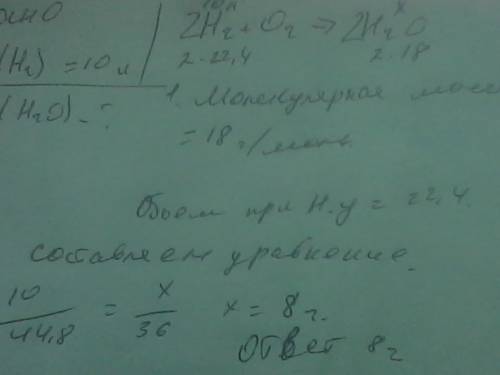 10 л x
2H₂ + O₂ ⇒ 2H₂O
(H₂) = 10 л
2·22,4 2·18
(H₂O) - ?
1. Молекулярная масс
= 18 г/моль.
Объем при Н.у = 22,4.
составляем уравнение.
10/44,8 = x/36 x = 8 г.
ответ 8 г